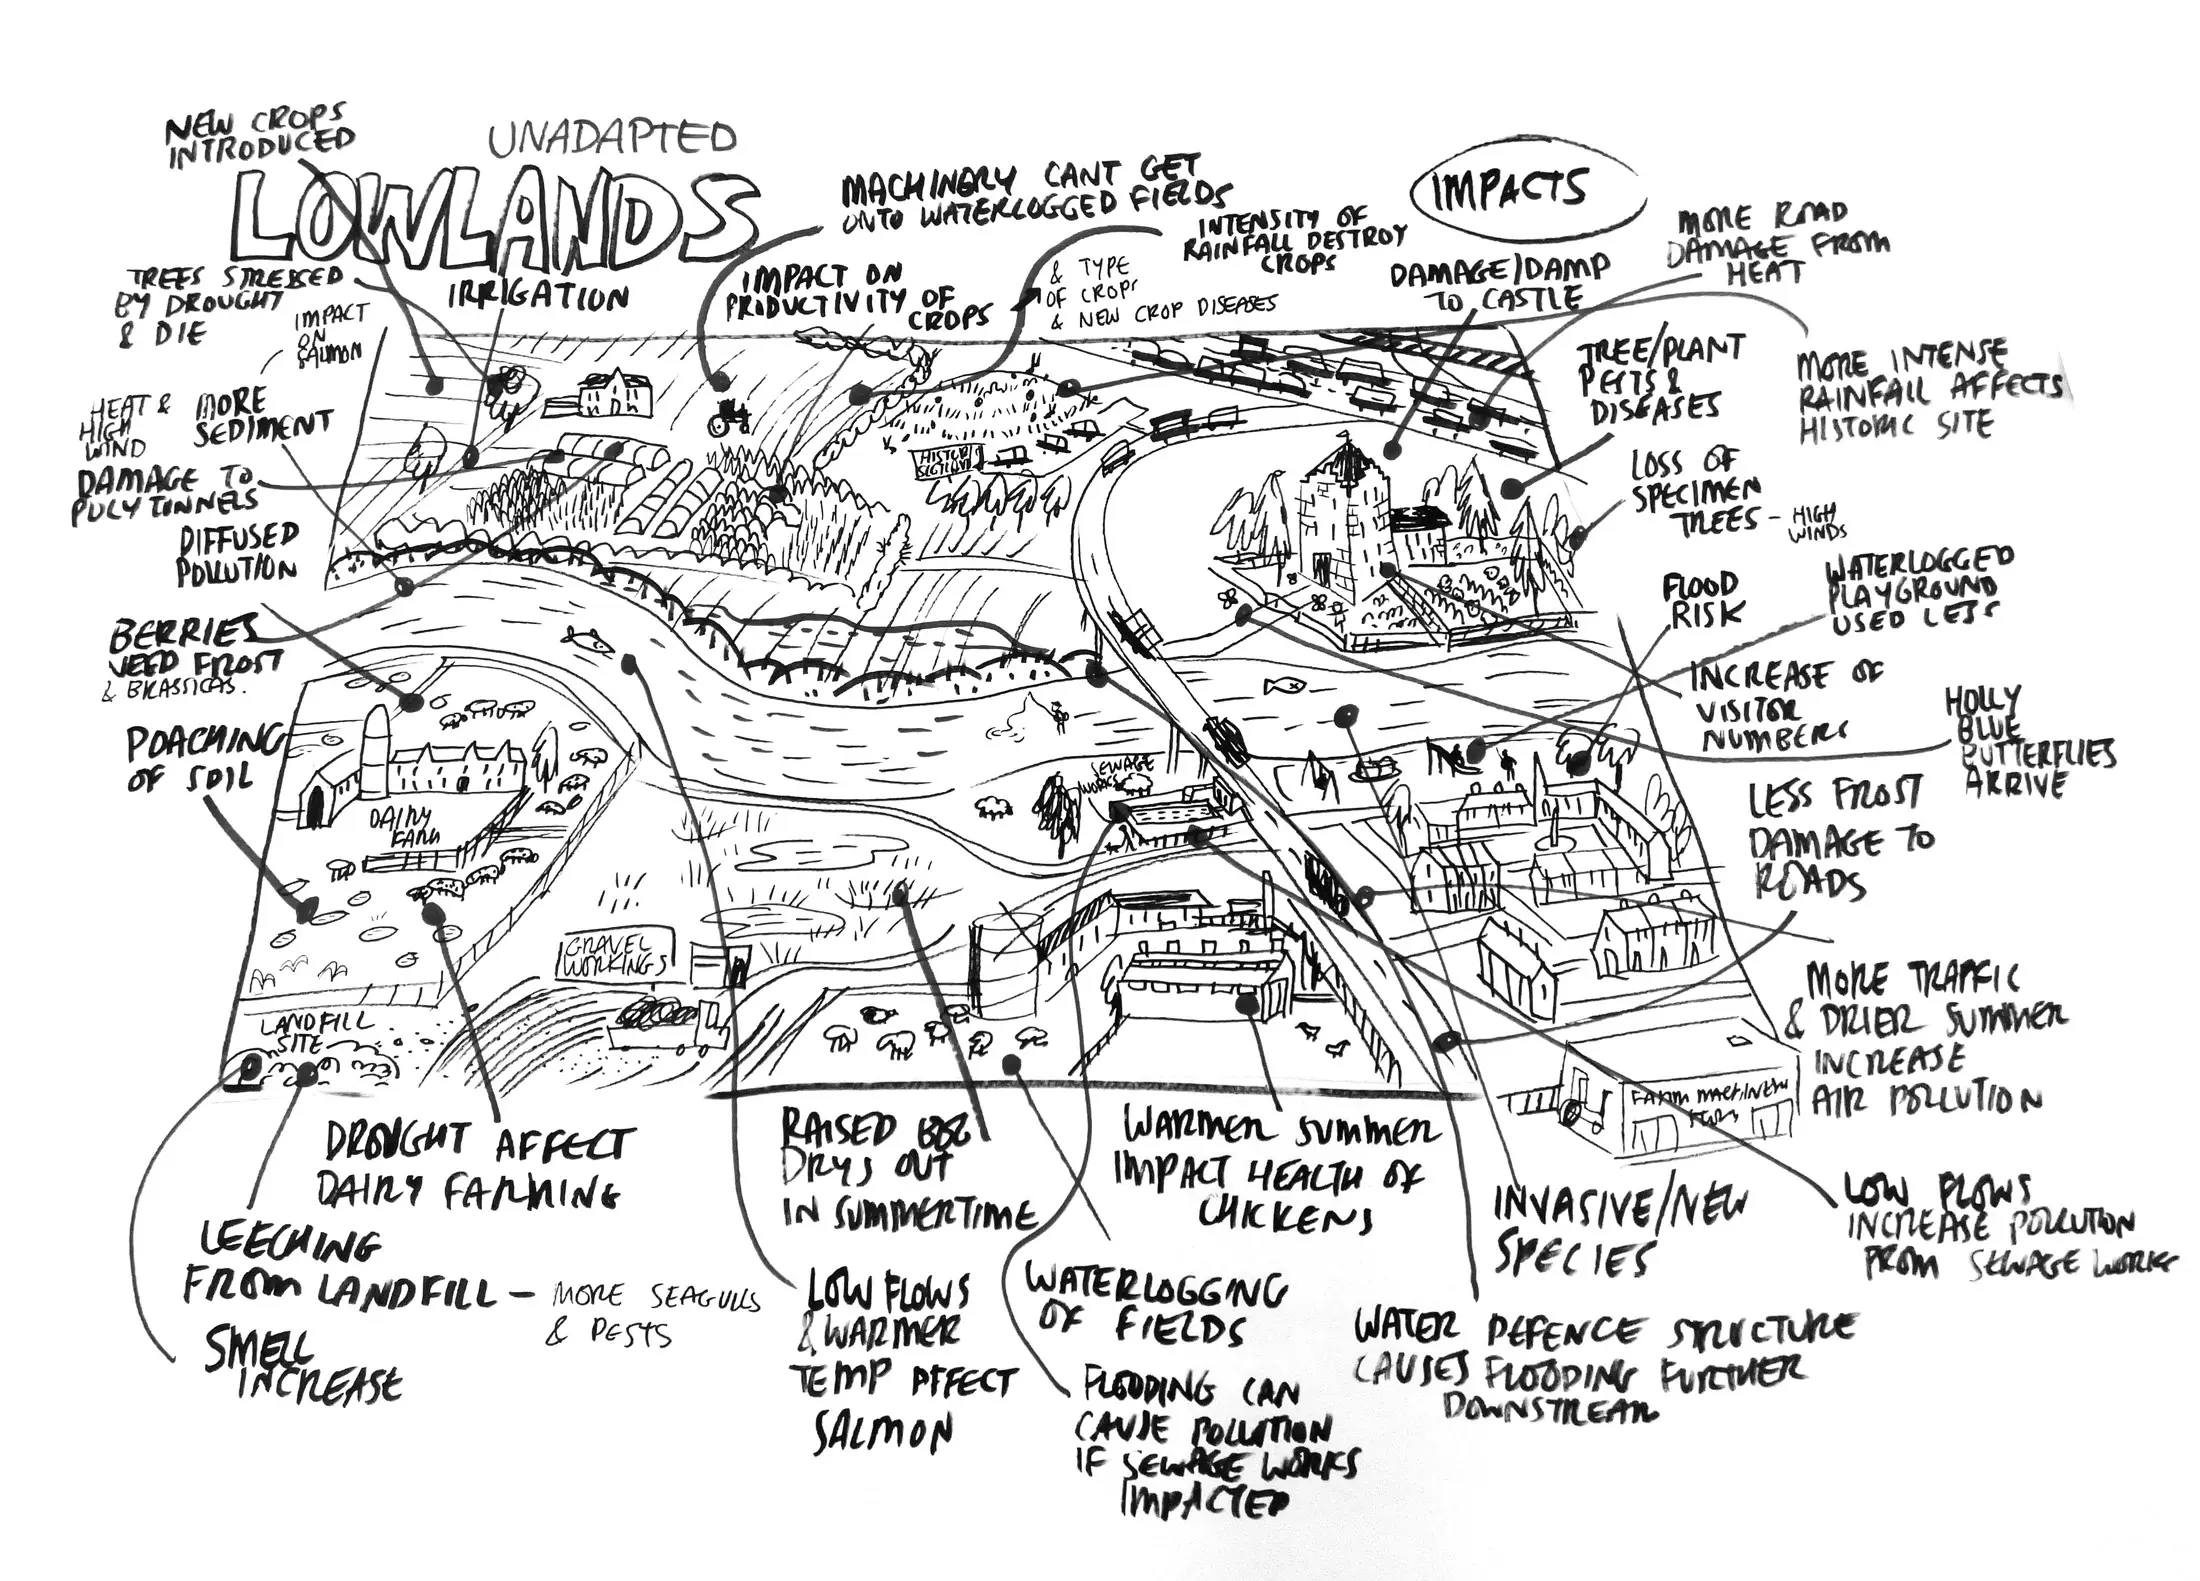 NEW CROPS
INTRODUCED
UNADAPTED
LOWLANDS
IMPACTS
MACHINERY CANT GET
ONTO WATERLOGGED FIELDS
INTENSITY OF
RAINFALL DESTROY
CROPS
& TYPE
OF CROPS
& NEW CROP DISEASES
MORE ROAD
DAMAGE FROM
HEAT
TREES STRESSED
BY DROUGHT
& DIE
IRRIGATION
IMPACT ON
PRODUCTIVITY OF
CROPS
DAMAGE/DAMP
TO CASTLE
IMPACT
ON
SALMON
TREE/PLANT
PESTS &
DISEASES
MORE INTENSE
RAINFALL AFFECTS
HISTORIC SITE
HEAT &
HIGH
WIND
MORE
SEDIMENT
DAMAGE TO
POLY TUNNELS
LOSS OF
SPECIMEN
TREES - HIGH
WINDS
DIFFUSED
POLLUTION
FLOOD
RISK
WATERLOGGED
PLAYGROUND
USED LESS
BERRIES
NEED FROST
& BRASSICAS.
INCREASE OF
VISITOR
NUMBERS
HOLLY
BLUE
BUTTERFLIES
ARRIVE
POACHING
OF SOIL
SEWAGE
WORKS
DAIRY
FARM
LESS FROST
DAMAGE TO
ROADS
GRAVEL
WORKINGS
LANDFILL
SITE
MORE TRAFFIC
& DRIER SUMMER
INCREASE
AIR POLLUTION
FARM MACHINERY
DROUGHT AFFECT
DAIRY FARMING
RAISED
DRYS OUT
IN SUMMERTIME
WARMER SUMMER
IMPACT HEALTH OF
CHICKENS
INVASIVE/NEW
SPECIES
LOW FLOWS
INCREASE POLLUTION
FROM SEWAGE WORKS
LEECHING
FROM LANDFILL - MORE SEAGULLS
& PESTS
SMELL
INCREASE
LOW FLOWS
& WARMER
TEMP AFFECT
SALMON
WATERLOGGING
OF FIELDS
FLOODING CAN
CAUSE POLLUTION
IF SEWAGE WORKS
IMPACTED
WATER DEFENCE STRUCTURE
CAUSES FLOODING FURTHER
DOWNSTREAM